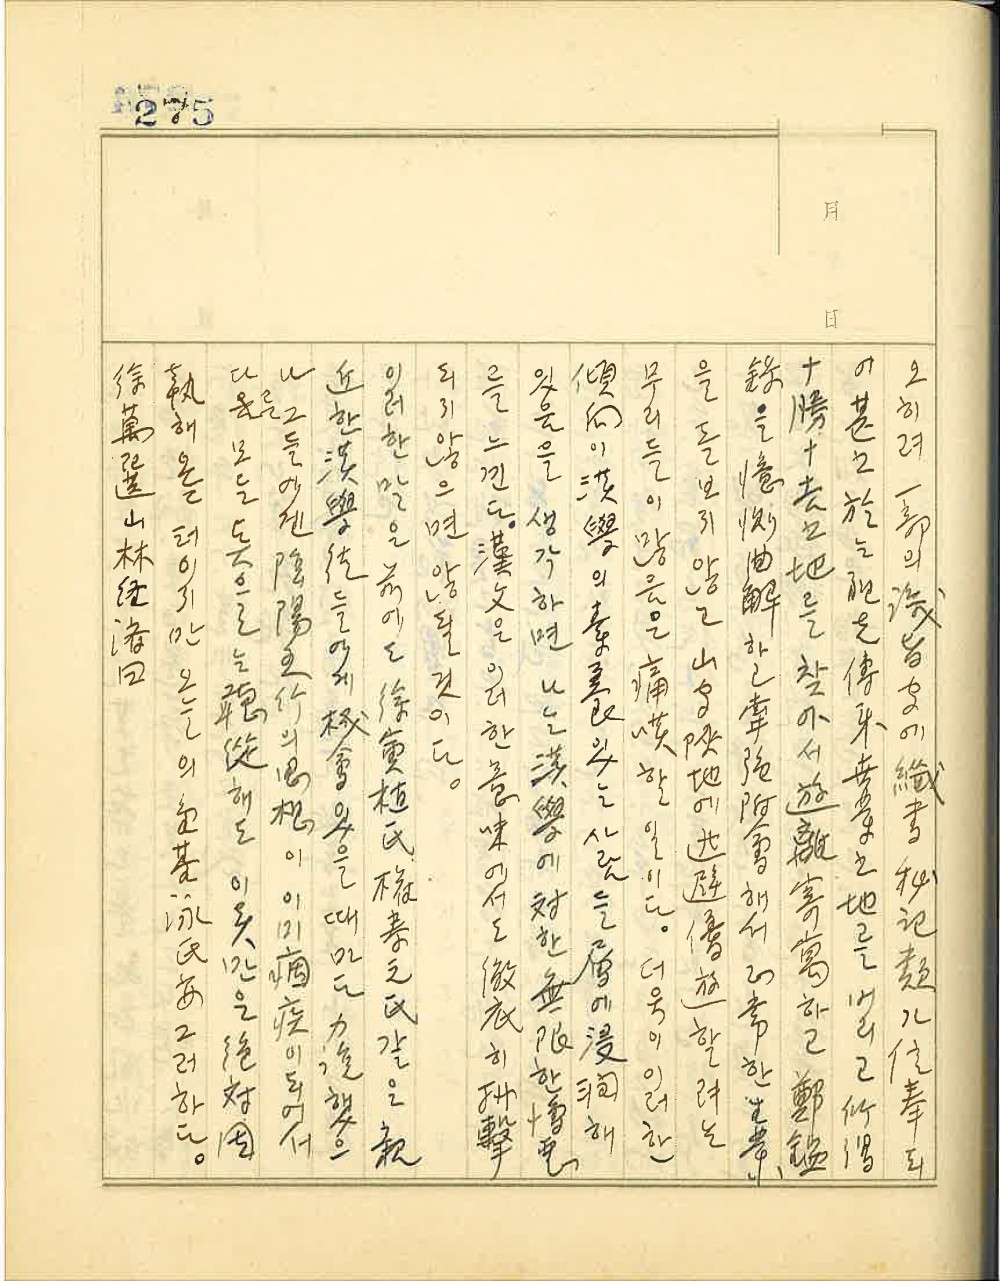 275
月
日
오히려 一部의 識者에 纖書 秘記類가 信奉되
여 甚至於는 祖先傳來 世業之地를 버리고 所謂
十勝十吉之地를 찾아서 遊離寄寓하고 鄭鑑
錄을 憶測曲解하고 牽强附會해서 正常한 生業
을 돌보지 않고 山 陜地에 逃避優遊할려는
무리들이 많음은 痛嘆할 일이다. 더욱이 이러한
傾向이 漢學의 素養있는 사람들 層에 浸潤해
있음을 생각하면 나는 漢學에 対한 無限한 憎惡
를 느낀다. 漢文은 이러한 意味에서도 徹底히 排擊
되지 않으면 않될 것이다.
이러한 말을 前에도 徐寅植氏 權泰元氏 같은 親
近한 漢學徒들에게 機會있을 때마다 力說했으
나 그들에겐 陰陽五行의 思想이 이미 痼疾이 되어서
다른 모든 듯으로는 聽從해도 이 点만은 絶対 固
執해 올 터이지만 오늘의 基泳氏 亦 그러하다.
徐萬選 山林經濟曰